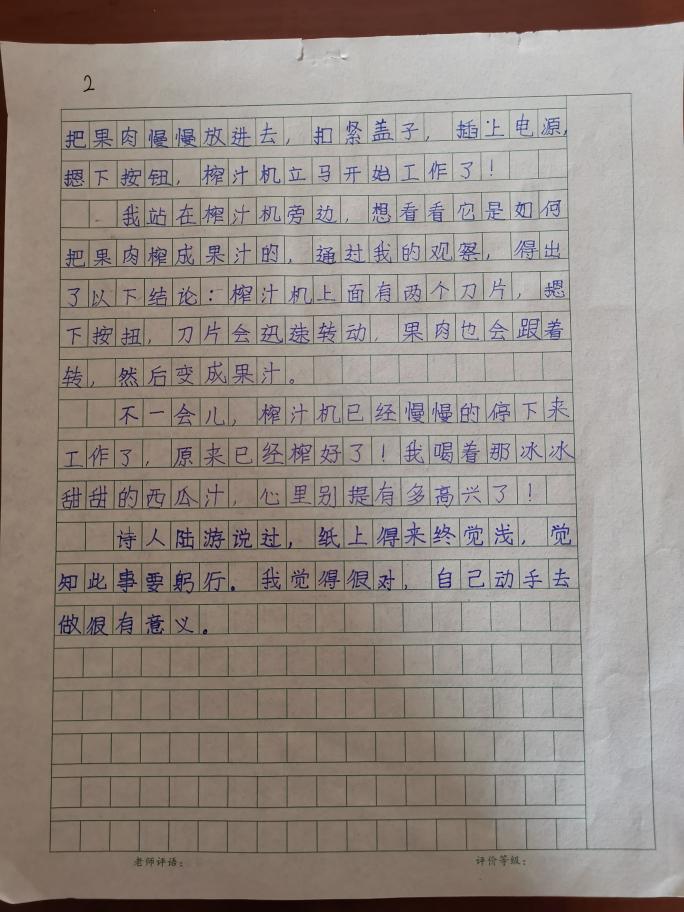 2
把果肉慢慢放进去，扣紧盖子，插上电源，
摁下按钮，榨汁机立马开始工作了！
我站在榨汁机旁边，想看看它是如何
把果肉榨成果汁的，通过我的观察，得出
了以下结论：榨汁机上面有两个刀片，摁
下按扭，刀片会迅速转动，果肉也会跟着
转，然后变成果汁。
不一会儿，榨汁机已经慢慢的停下来
工作了，原来已经榨好了！我喝着那冰冰
甜甜的西瓜汁，心里别提有多高兴了！
诗人陆游说过，纸上得来终觉浅，觉
知此事要躬行。我觉得很对，自己动手去
做很有意义。
老师评语：
评价等级：